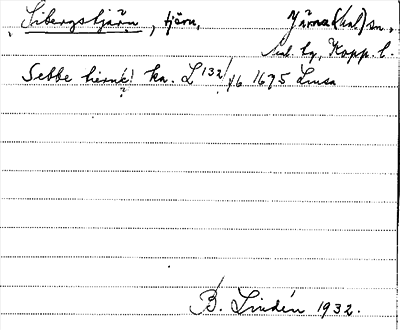 Sibergstjärn, tjärn, Järna (Dal.) sn,
Kopp. l.
Sebbe hierné! ka. L 132/46 1695 Linsa
?
B. Lindén 1932.